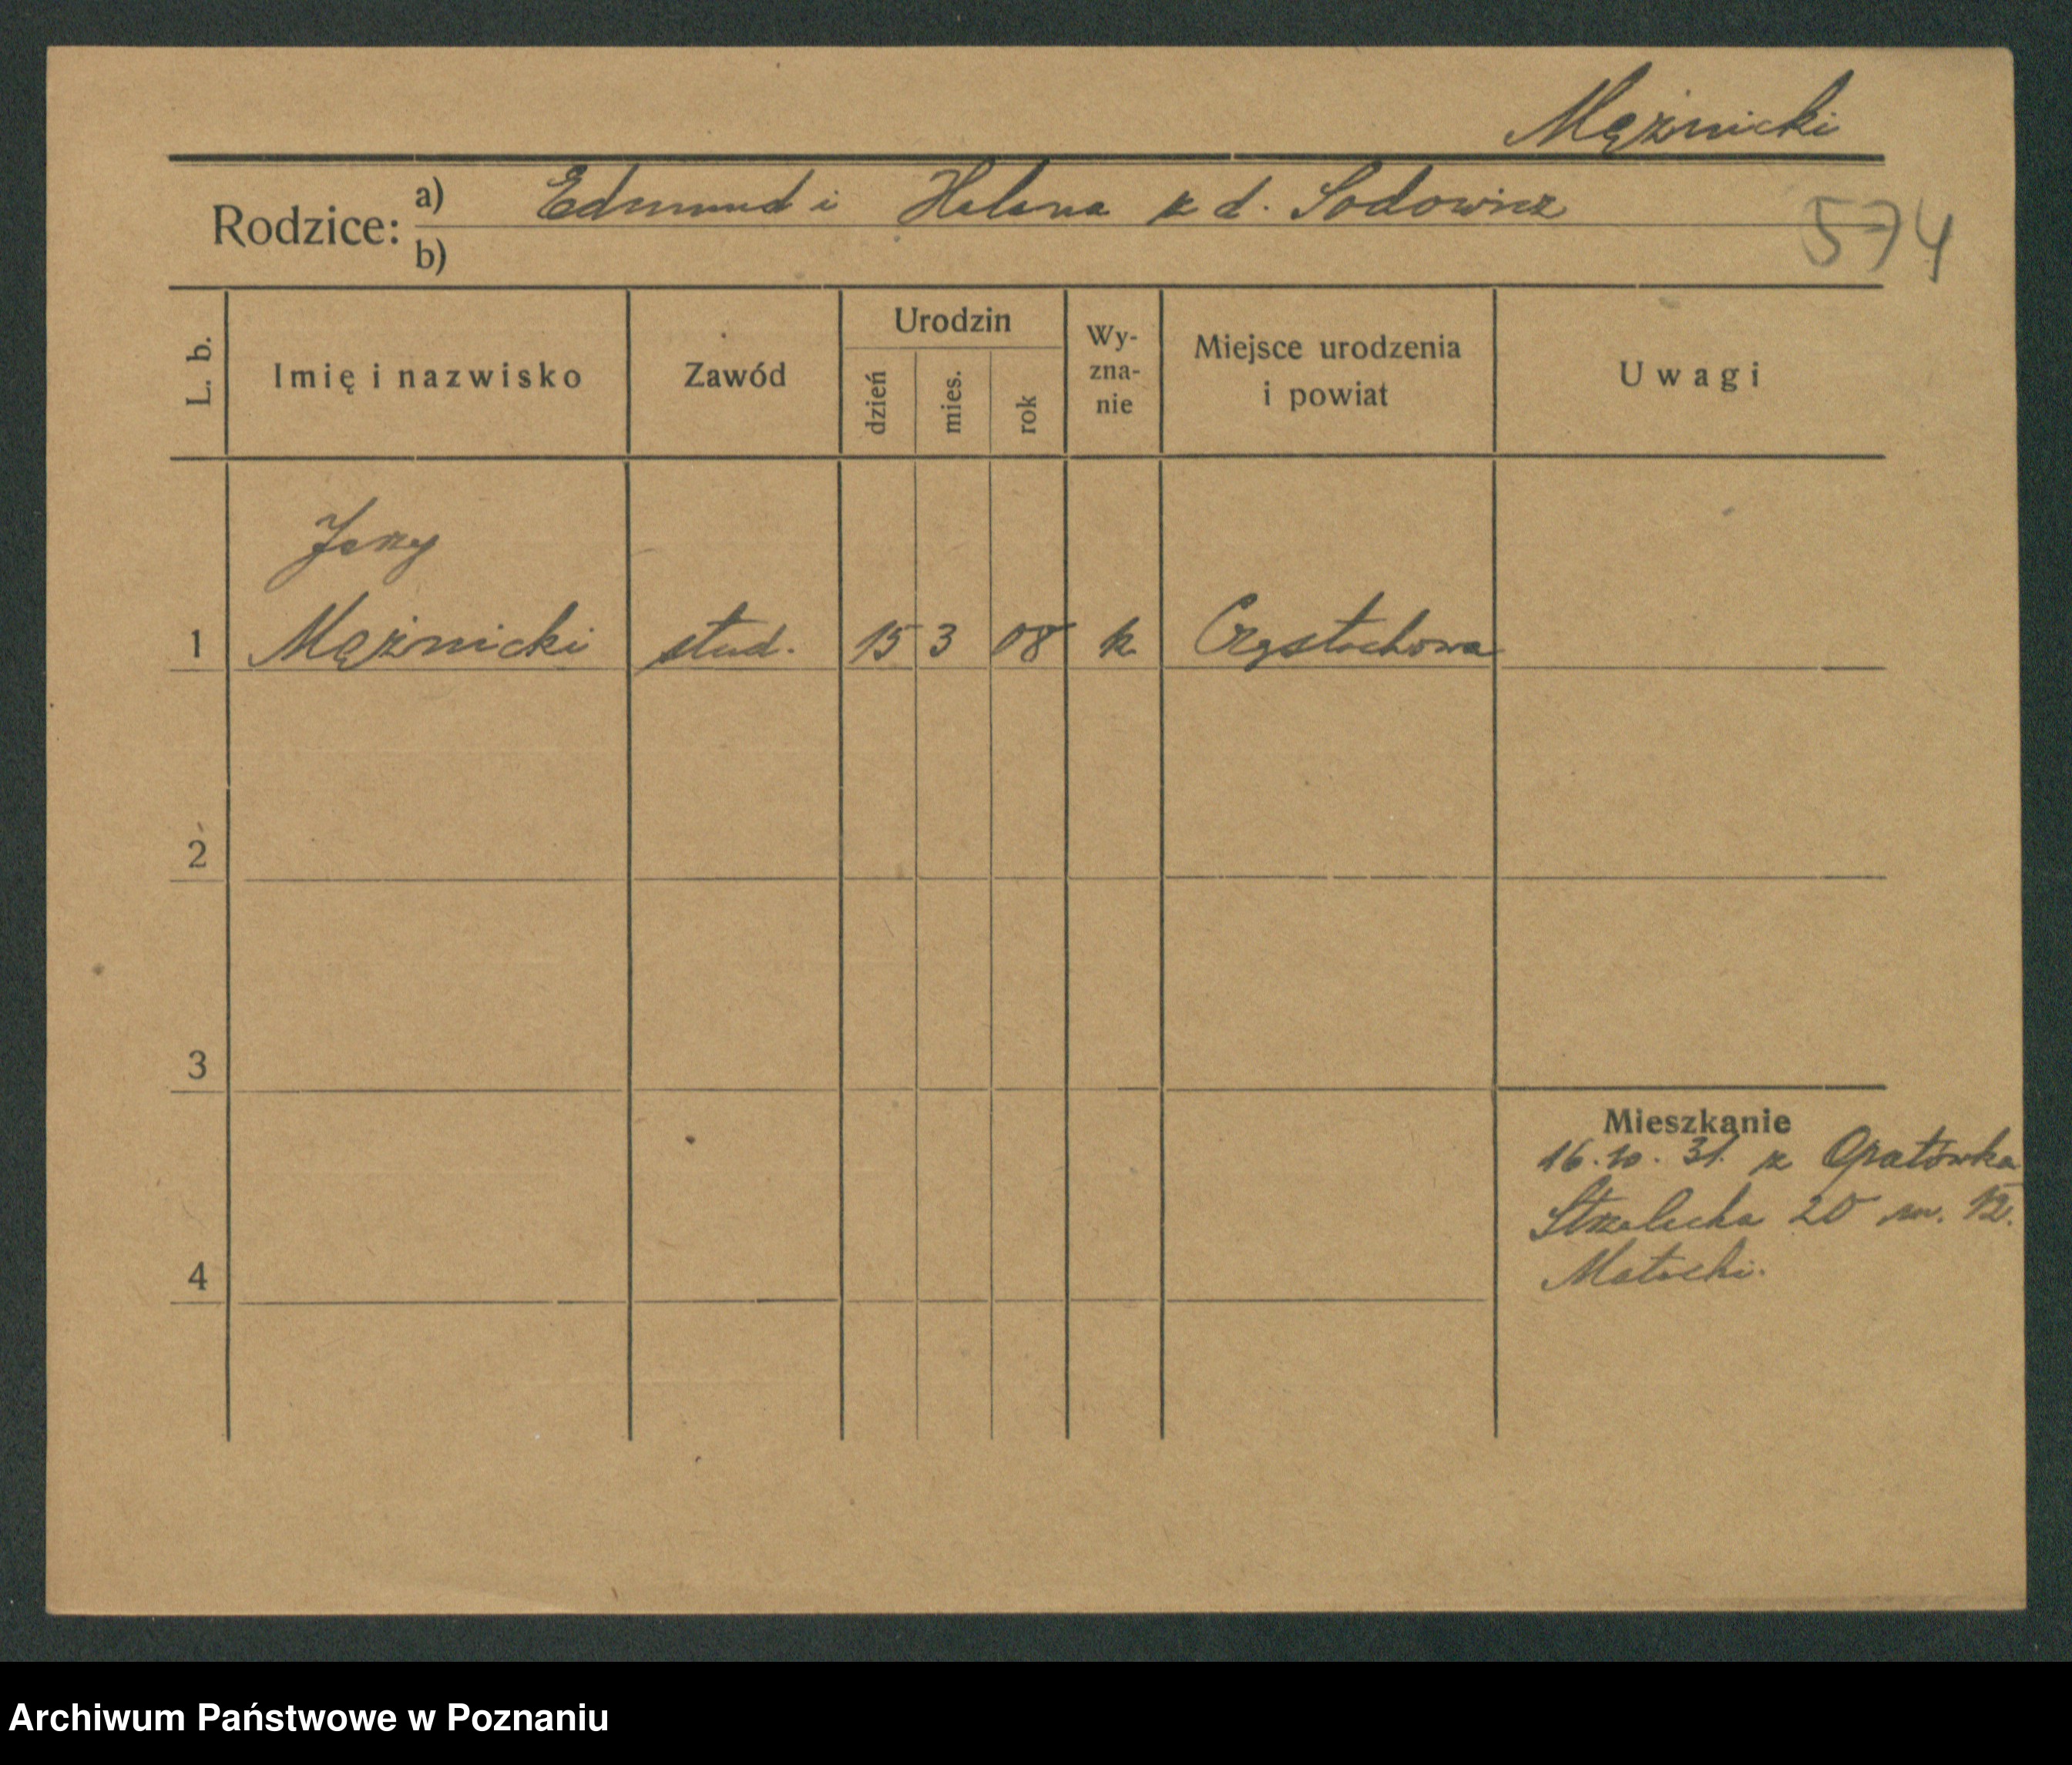 Mężnicki
Rodzice: a) Edmund i Helena z d. Sodowicz
b)
574
L. b. Imię i nazwisko Zawód Urodzin dzień mies. rok Wy-zna-nie Miejsce urodzenia i powiat Uwagi
Jerzy
1 Mężnicki stud. 15 3 08 k. Częstochowa
2
3
Mieszkanie
16.10.31. z Opatówka
Strzelecka 20 m. 12.
Matecki.
4
Archiwum Państwowe w Poznaniu